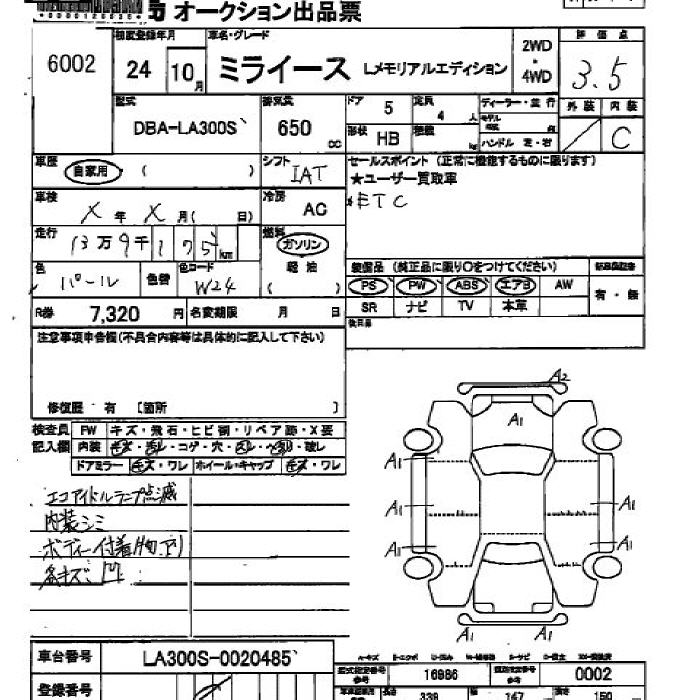 オークション出品票
6002
初度登録年月
24 10月
車名・グレード
ミライース Lメモリアルエディション
2WD
・
4WD
評価点
3.5
型式
DBA-LA300S
排気量
650 cc
ドア 5
定員 4 人
形状 HB
積載 kg
ディーラー・並行
モデル
ハンドル 左・右
外装 内装
C
車歴
自家用 ( )
シフト
IAT
セールスポイント (正常に機能するものに限ります)
★ユーザー買取車
*ETC
車検
X 年 X 月( 日)
冷房
AC
走行
13万9千175km
燃料
ガソリン
軽油
( )
色
パール
色替
色コード
W24
装備品 (純正品に限り○をつけてください)
PS PW ABS エアB AW
SR ナビ TV 本革
有・無
R券 7,320 円
名変期限 月 日
後日品
注意事項申告欄(不具合内容等は具体的に記入して下さい)
修復歴・有 [箇所 ]
検査員
記入欄
FW キズ・飛石・ヒビ割・リペア跡・X要
内装
ドアミラー キズ・ワレ ホイール・キャップ キズ・ワレ
エコアイドルランプ点滅
内装シミ
ボディー付着物アリ
A2
A1
A1
A1
A1
A1
A1
A1
A1
A1
車台番号 LA300S-0020485
登録番号
16986
0002
長さ 339 幅 147 高さ 150